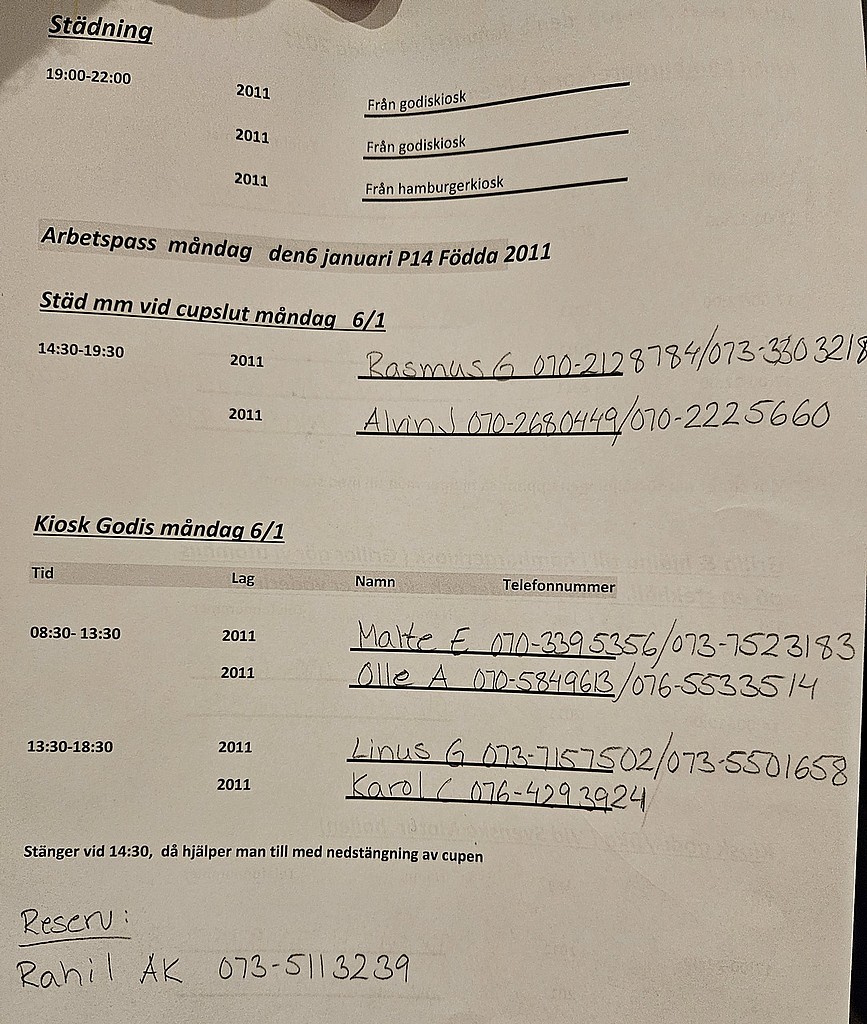 Städning
19:00-22:00 2011 Från godiskiosk
2011 Från godiskiosk
2011 Från hamburgerkiosk
Arbetspass måndag den6 januari P14 Födda 2011
Städ mm vid cupslut måndag 6/1
14:30-19:30 2011 Rasmus G 070-2128784/073-3303218
2011 Alvin J 070-2680449/070-2225660
Kiosk Godis måndag 6/1
Tid Lag Namn Telefonnummer
08:30- 13:30 2011 Malte E 070-3395356/073-7523183
2011 Olle A 070-5849613/076-5533514
13:30-18:30 2011 Linus G 073-7157502/073-5501658
2011 Karol C 076-4293924
Stänger vid 14:30, då hjälper man till med nedstängning av cupen
Reserv:
Rahil AK 073-5113239